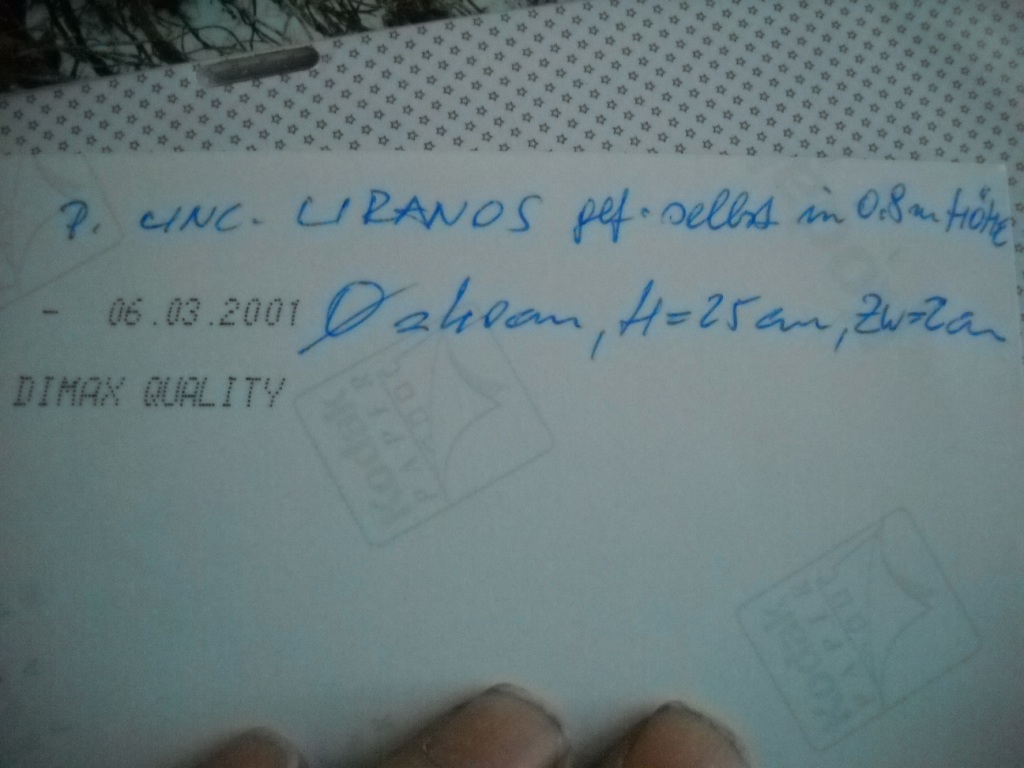 P. UNC. URANOS gef. selbst in 0.8m Höhe
- 06.03.2001 Ø ca 40cm, H=25cm, ZW=2cm
DIMAX QUALITY
Kodak
PAPIER
Kodak
PAPIER